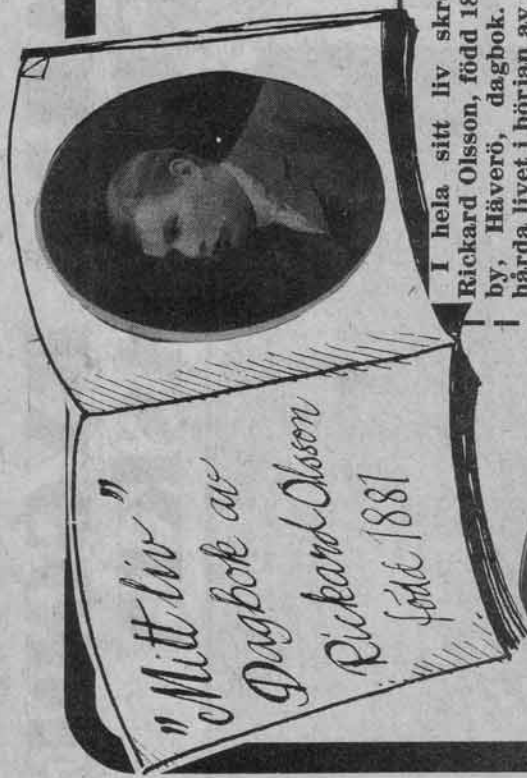 "Mitt liv"
Dagbok av
Rickard Olsson
född 1881
I hela sitt liv
Rickard Olsson, född
by, Häverö, dagbok.
hårda livet i början